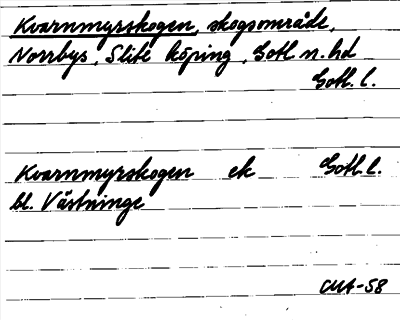 Kvarnmyrskogen, skogsområde,
Norrbys, Slite köping, Gotl. n. hd
Gotl. l.
Kvarnmyrskogen ek Gotl. l.
bl. Västninge
CMA-58